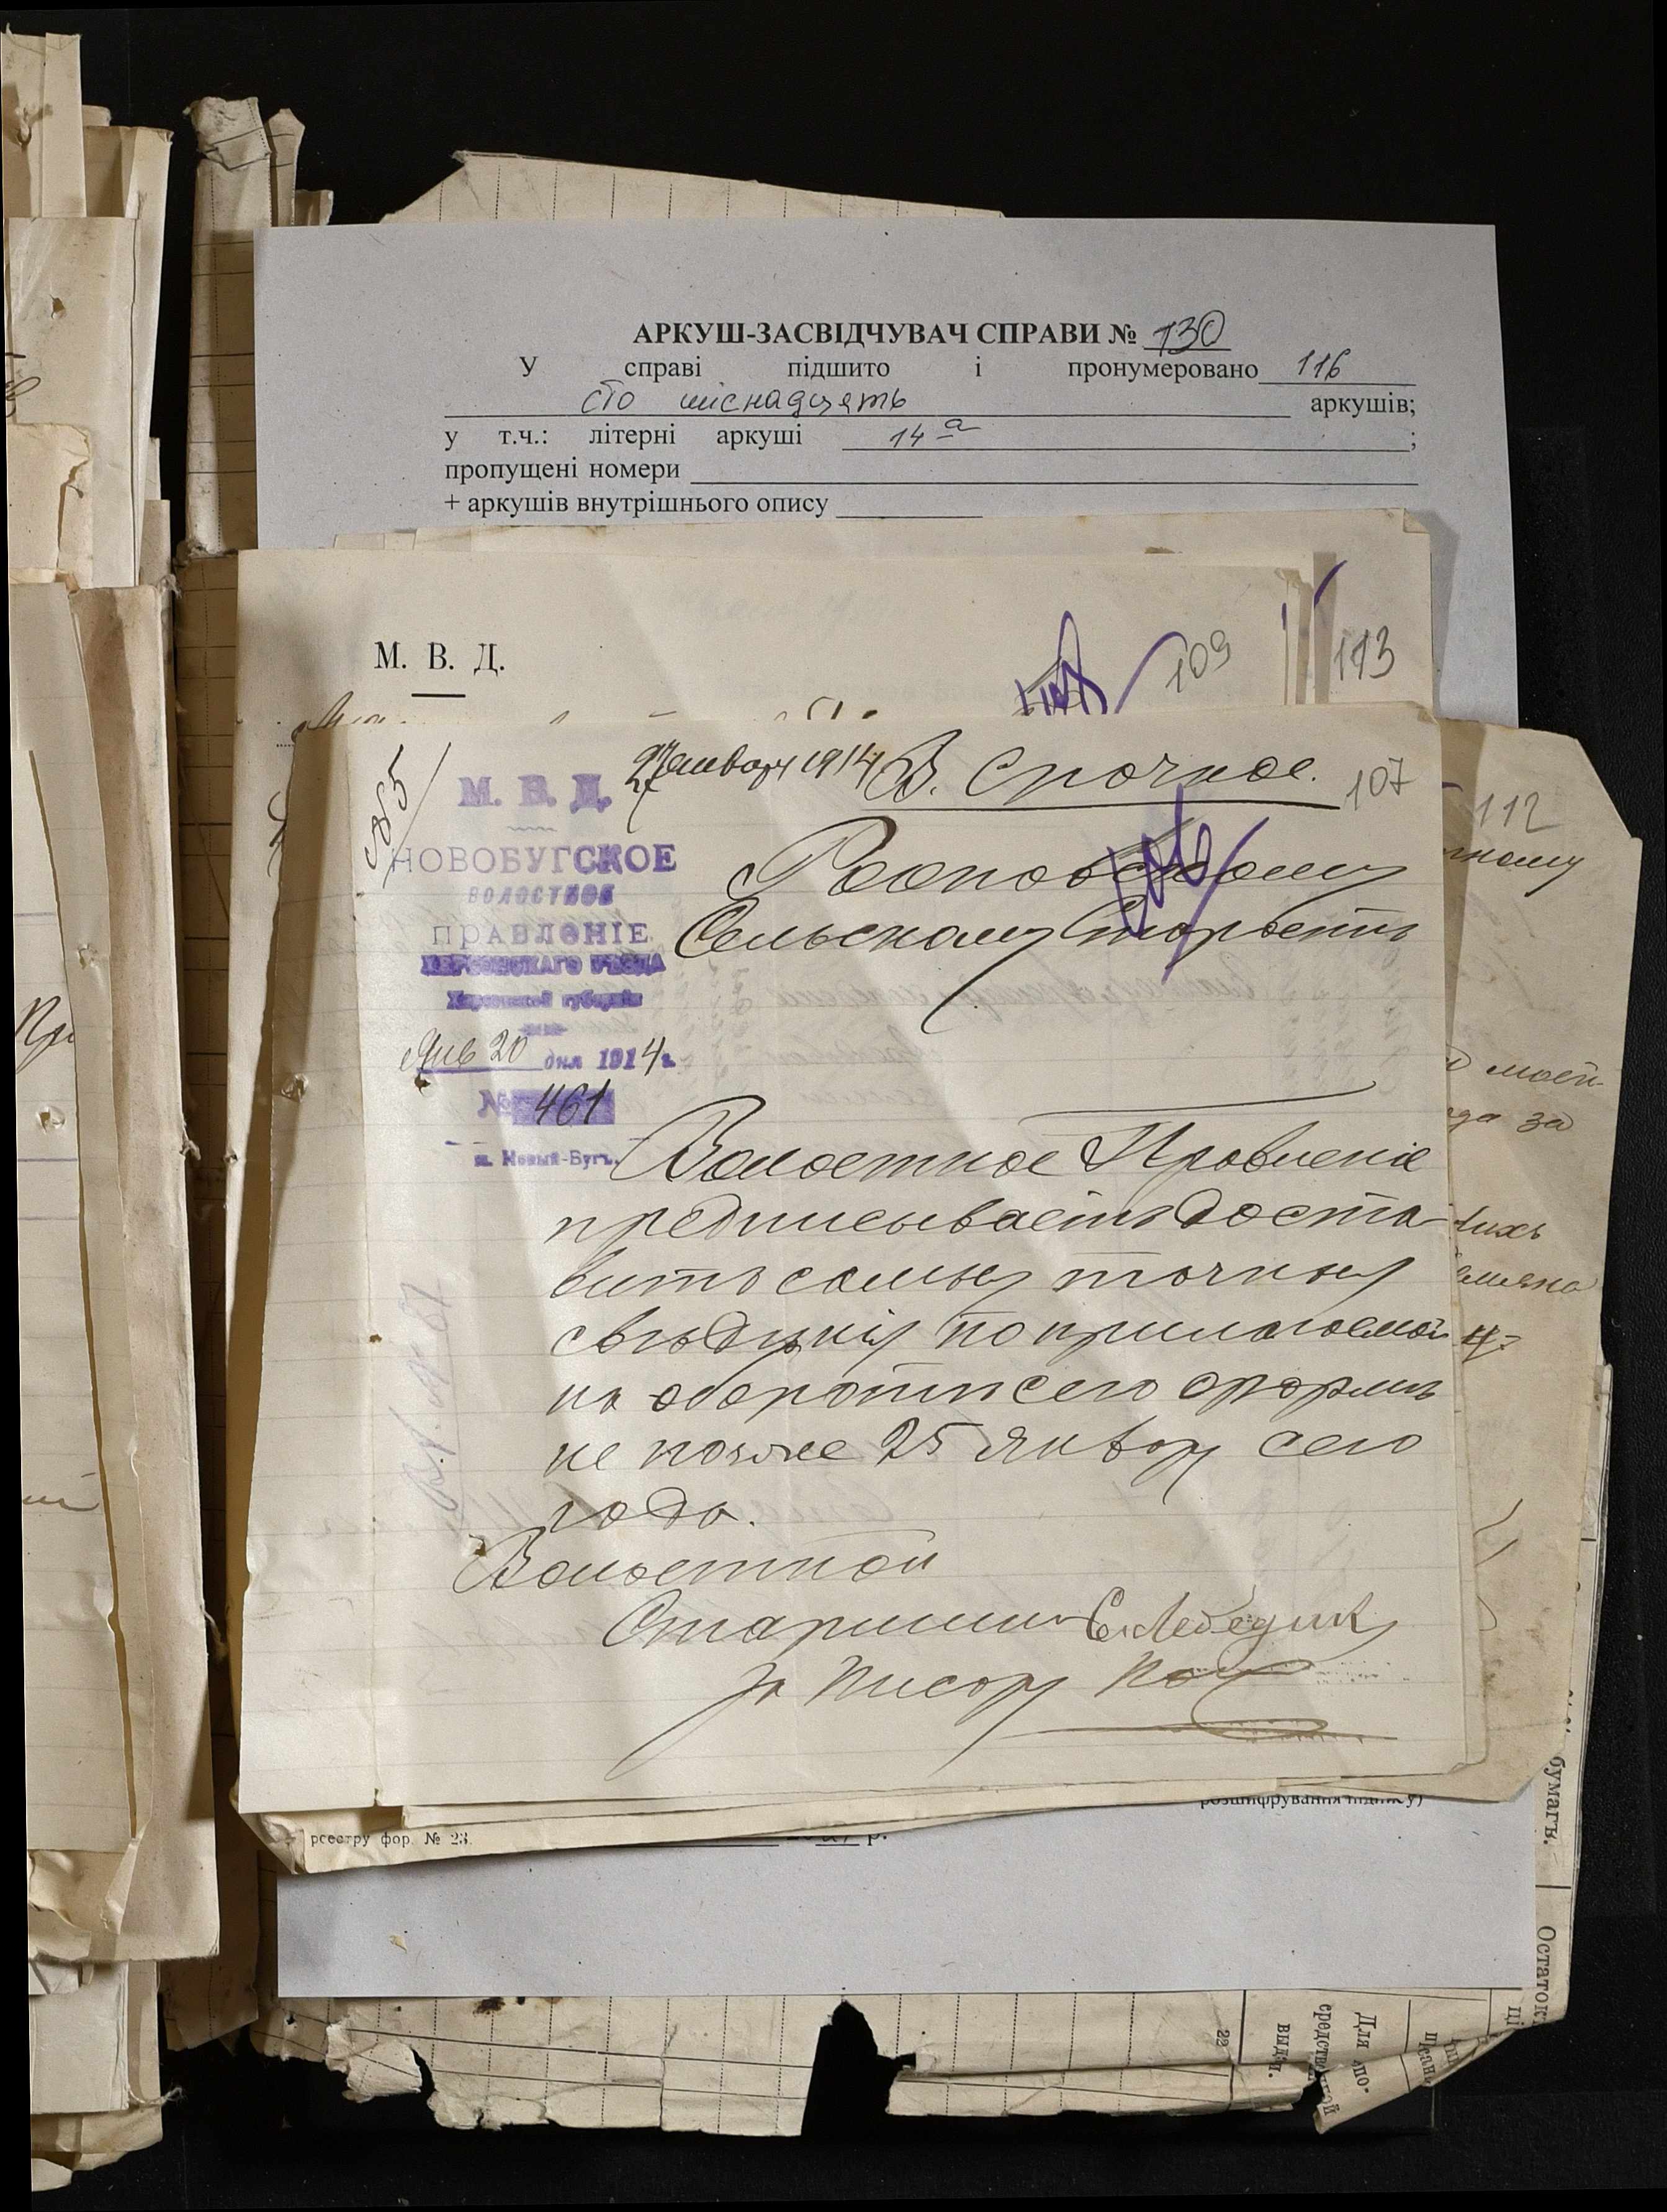 АРКУШ-ЗАСВІДЧУВАЧ СПРАВИ № 130
У справі підшито і пронумеровано 116
сто шіснадцять аркушів;
у т.ч.: літерні аркуші 14 а ;
пропущені номери
+ аркушів внутрішнього опису
М. В. Д.
109
113
27 января 1914
В. Срочное.
107
112
М. В. Д.
НОВОБУГСКОЕ
ВОЛОСТНОЕ
ПРАВЛЕНІЕ
ХЕРСОНСКАГО УѢЗДА
Херсонской губерніи
Янв 20 дня 1914 г.
№ 461
м. Новый-Бугъ.
Сельскому Старостѣ
Волостное Правленіе
предписываетъ доста-
вить самыя точныя
свѣдѣнія по прилагаемой
на оборотѣ сего формѣ
не позже 25 Января сего
года.
Волостной
Старшина
За Писаря
реестру фор. № 23.
розшифрування підпису)
р.
бумагъ.
Остаток
Для по-
средств
выдач.
22
Пр
моей
за